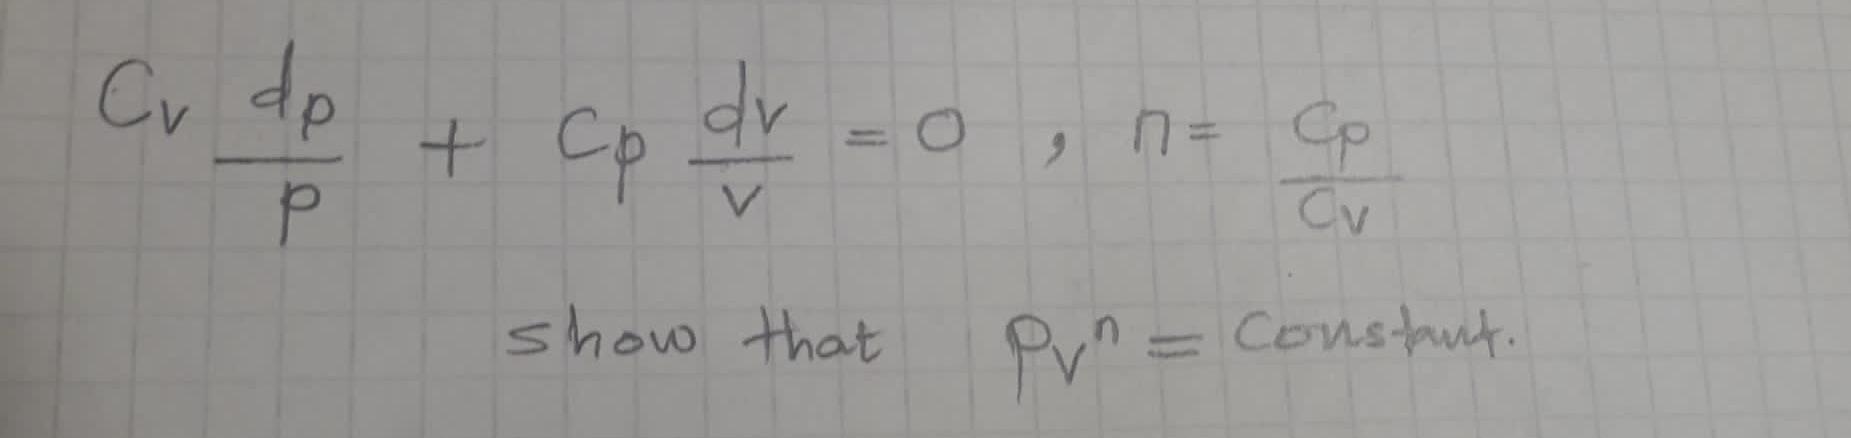 Cv dp/p + Cp dv/v = 0 , n = Cp/Cv
show that pvⁿ = Constant.